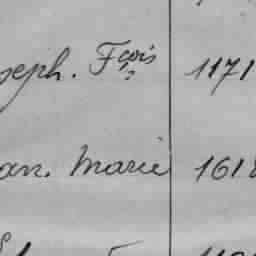 oseph. Fçois 1171
an. Marie 161